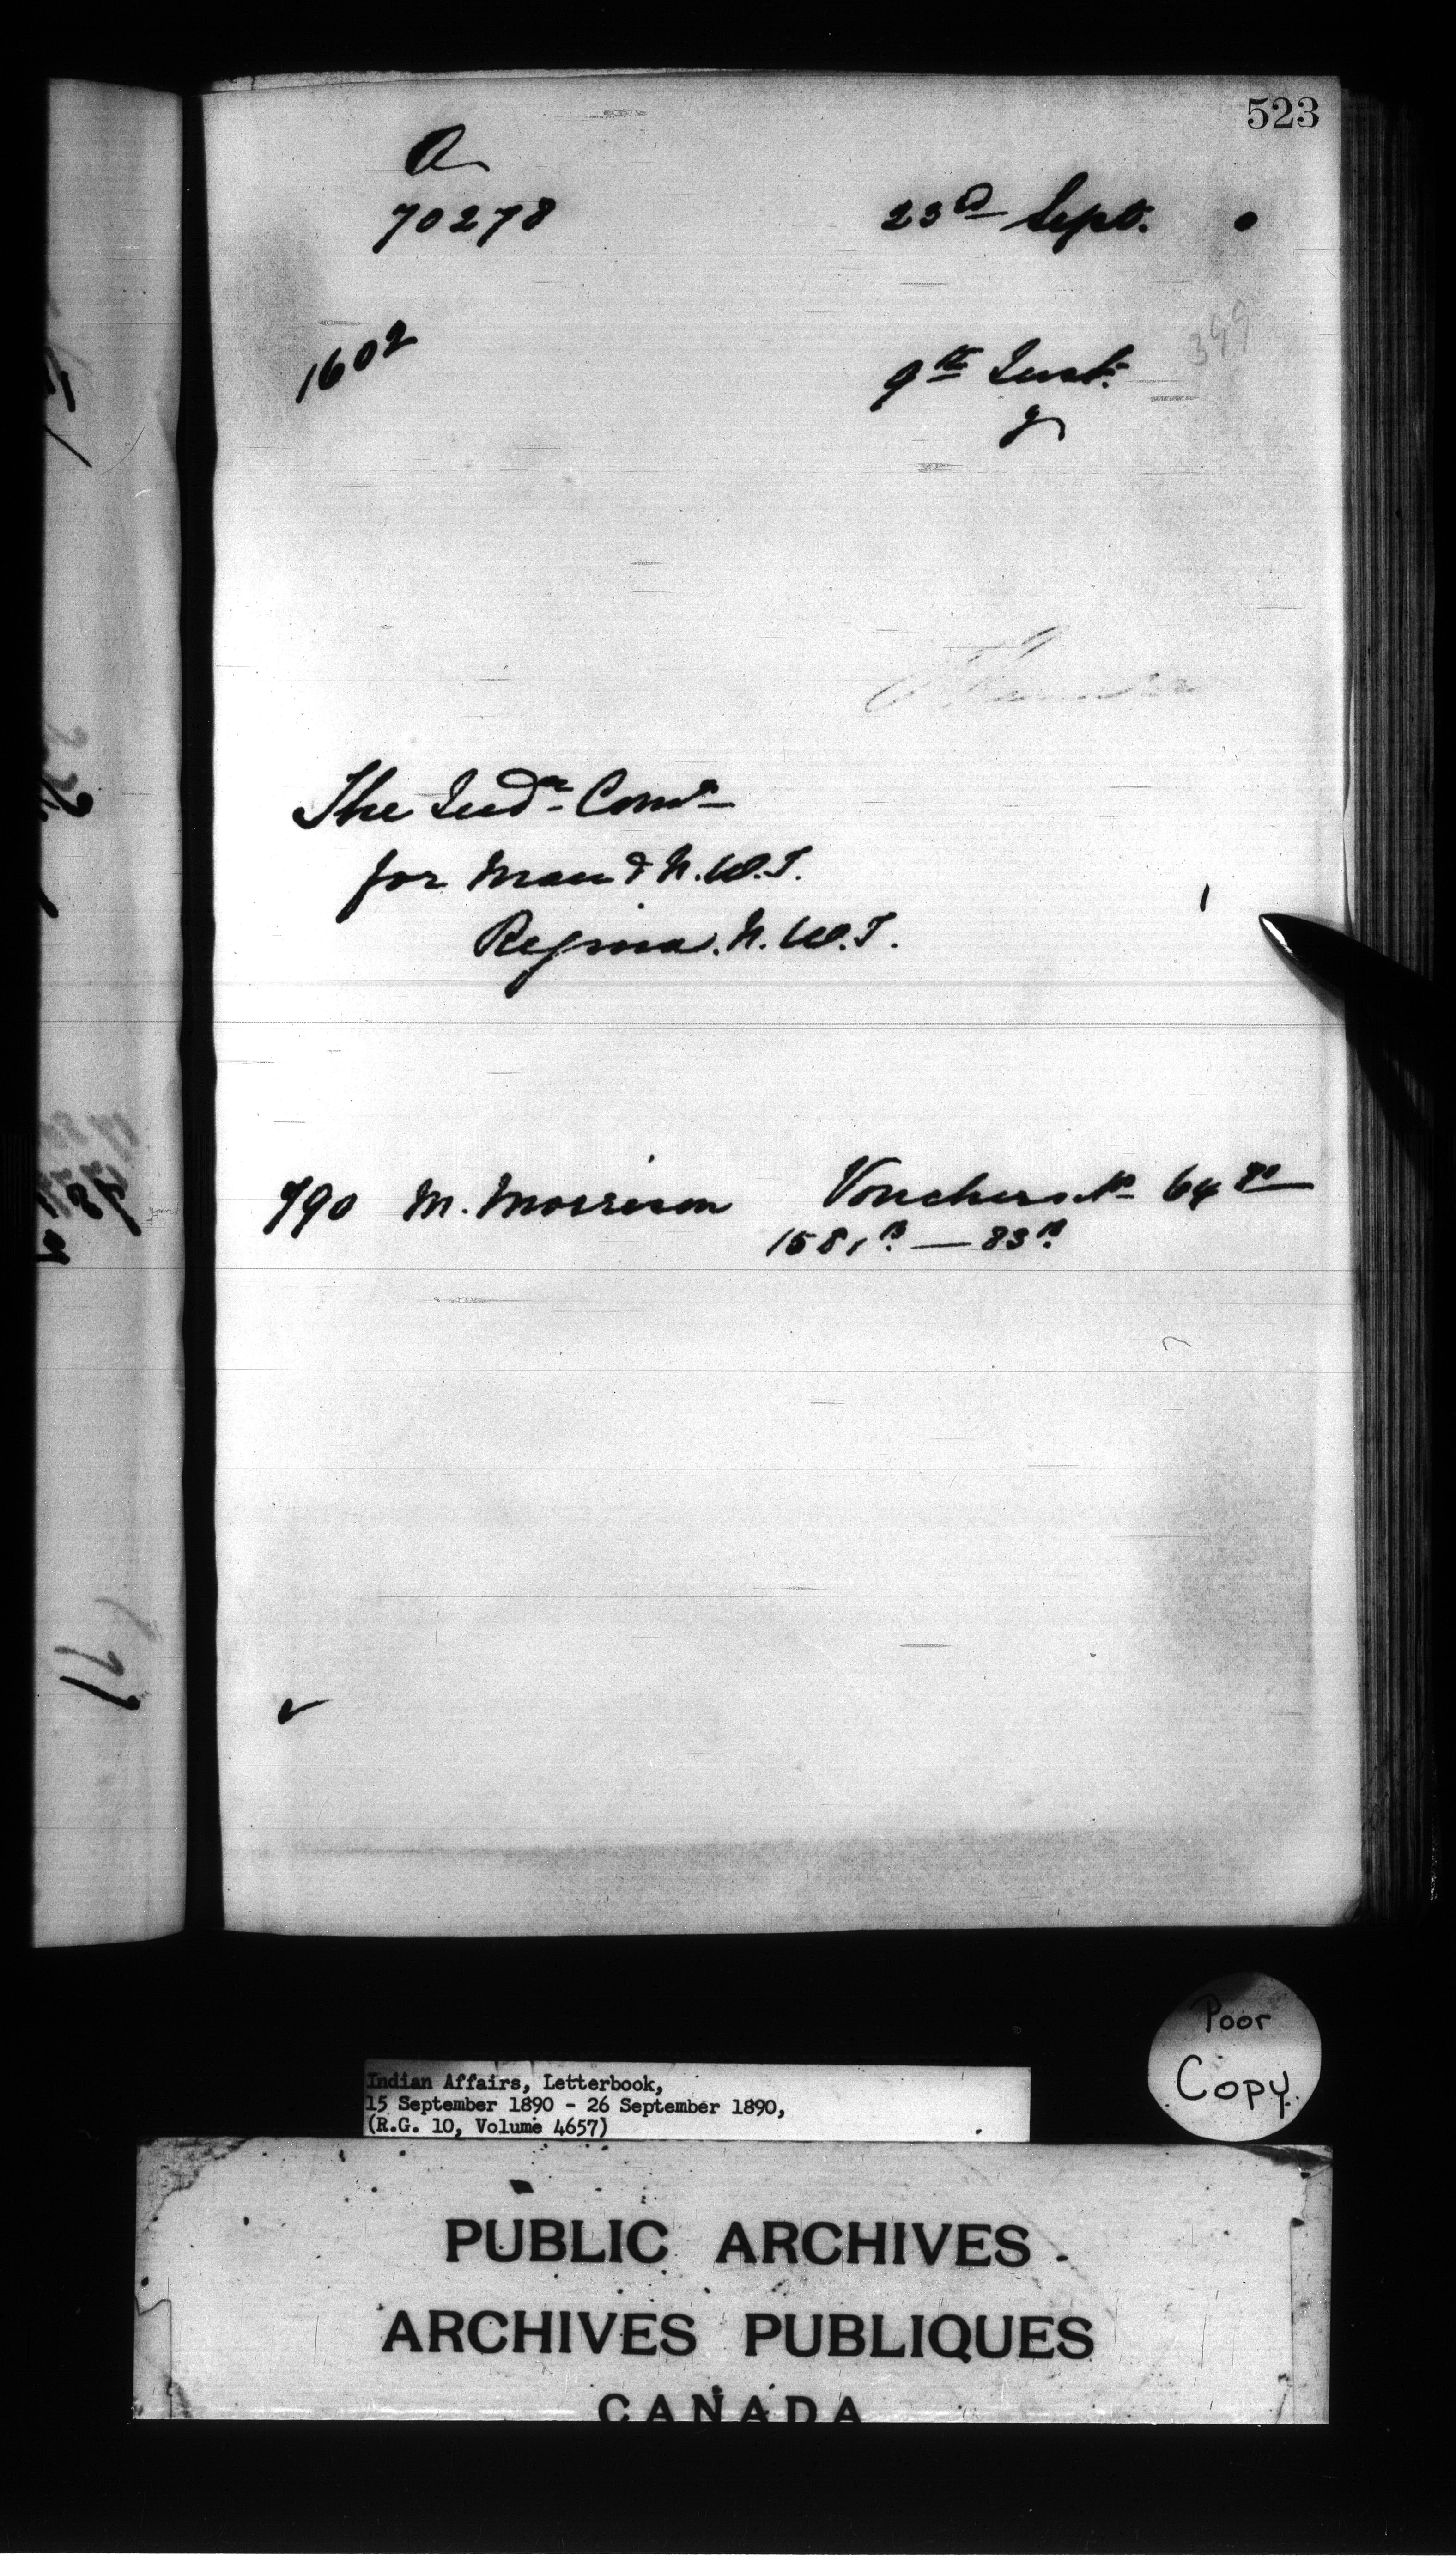 523
A
70278 23d Sept.
399
1602 9th Inst.
The Indn Comr
for Man & N.W.T.
Regina. N.W.T.
790 M. Morrison Vouchers No 64
1581 — 83
Poor
Copy.
Indian Affairs, Letterbook,
15 September 1890 - 26 September 1890,
(R.G. 10, Volume 4657)
PUBLIC ARCHIVES
ARCHIVES PUBLIQUES
CANADA